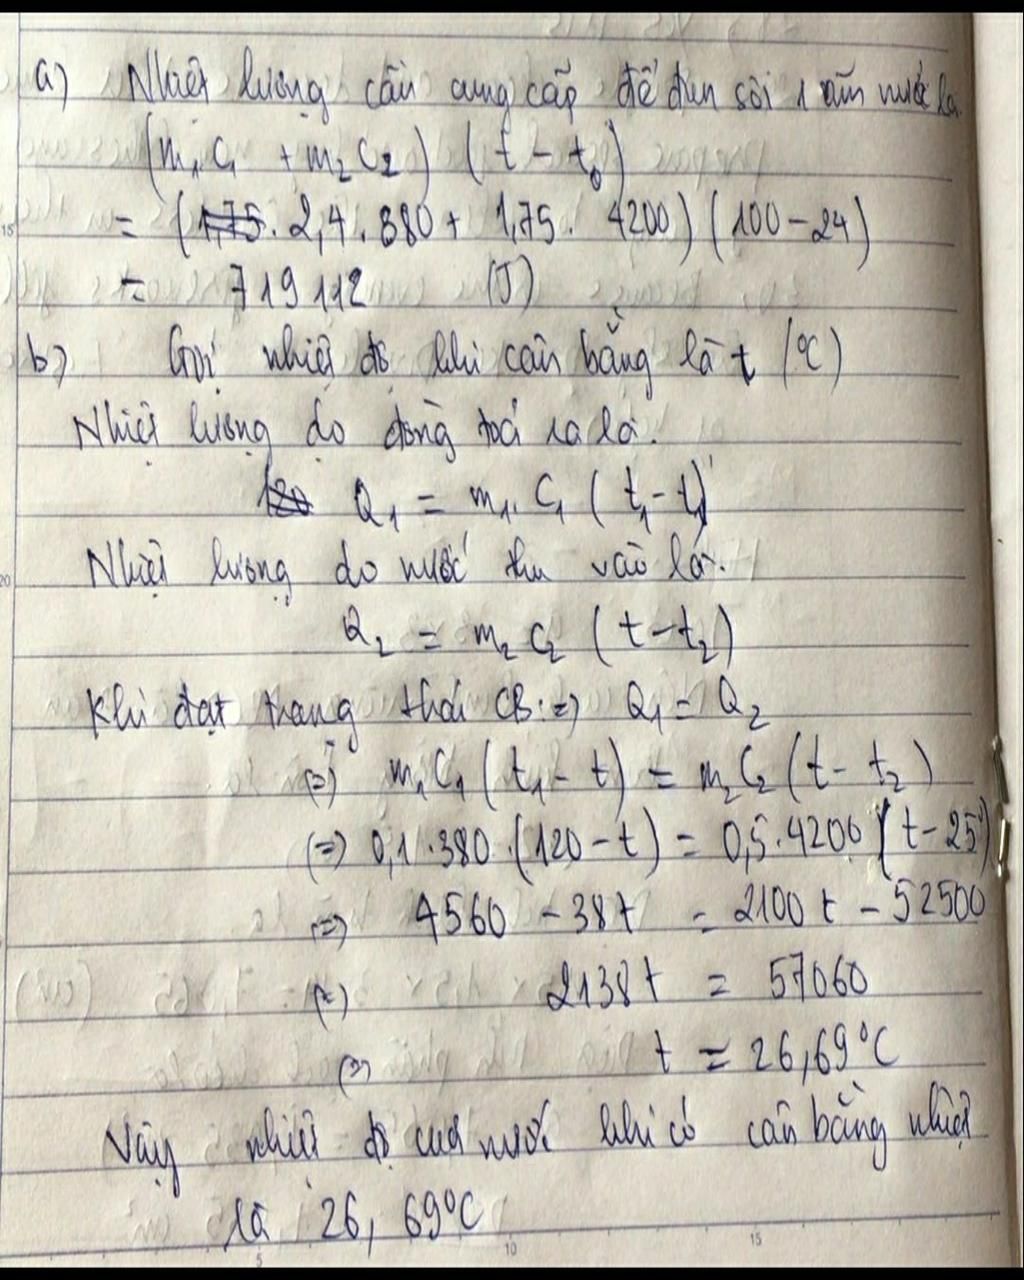 a) Nhiệt lượng cần cung cấp để đun sôi 1 ấm nước là
(m₁C₁ + m₂C₂) (t - t₀)
= (1,75. 2,4.880 + 1,75. 4200) (100-24)
= 719112 (J)
b) Gọi nhiệt độ khi cân bằng là t (°C)
Nhiệt lượng do đồng toả ra là.
120 Q₁ = m₁. C₁ (t₁-t)
Nhiệt lượng do nước thu vào là.
Q₂ = m₂ C₂ (t-t₂)
Khi đạt trạng thái CB:=) Q₁ = Q₂
(=) m₁C₁ (t₁ - t) = m₂C₂ (t - t₂)
(=) 0,1.380.(120-t) = 0,5.4200 (t-25)
(=) 4560 - 38t = 2100t - 52500
(=) 2138t = 57060
(=) t = 26,69°C
Vậy nhiệt độ của nước khi có cân bằng nhiệt
là 26,69°C
15
20
5 10 15